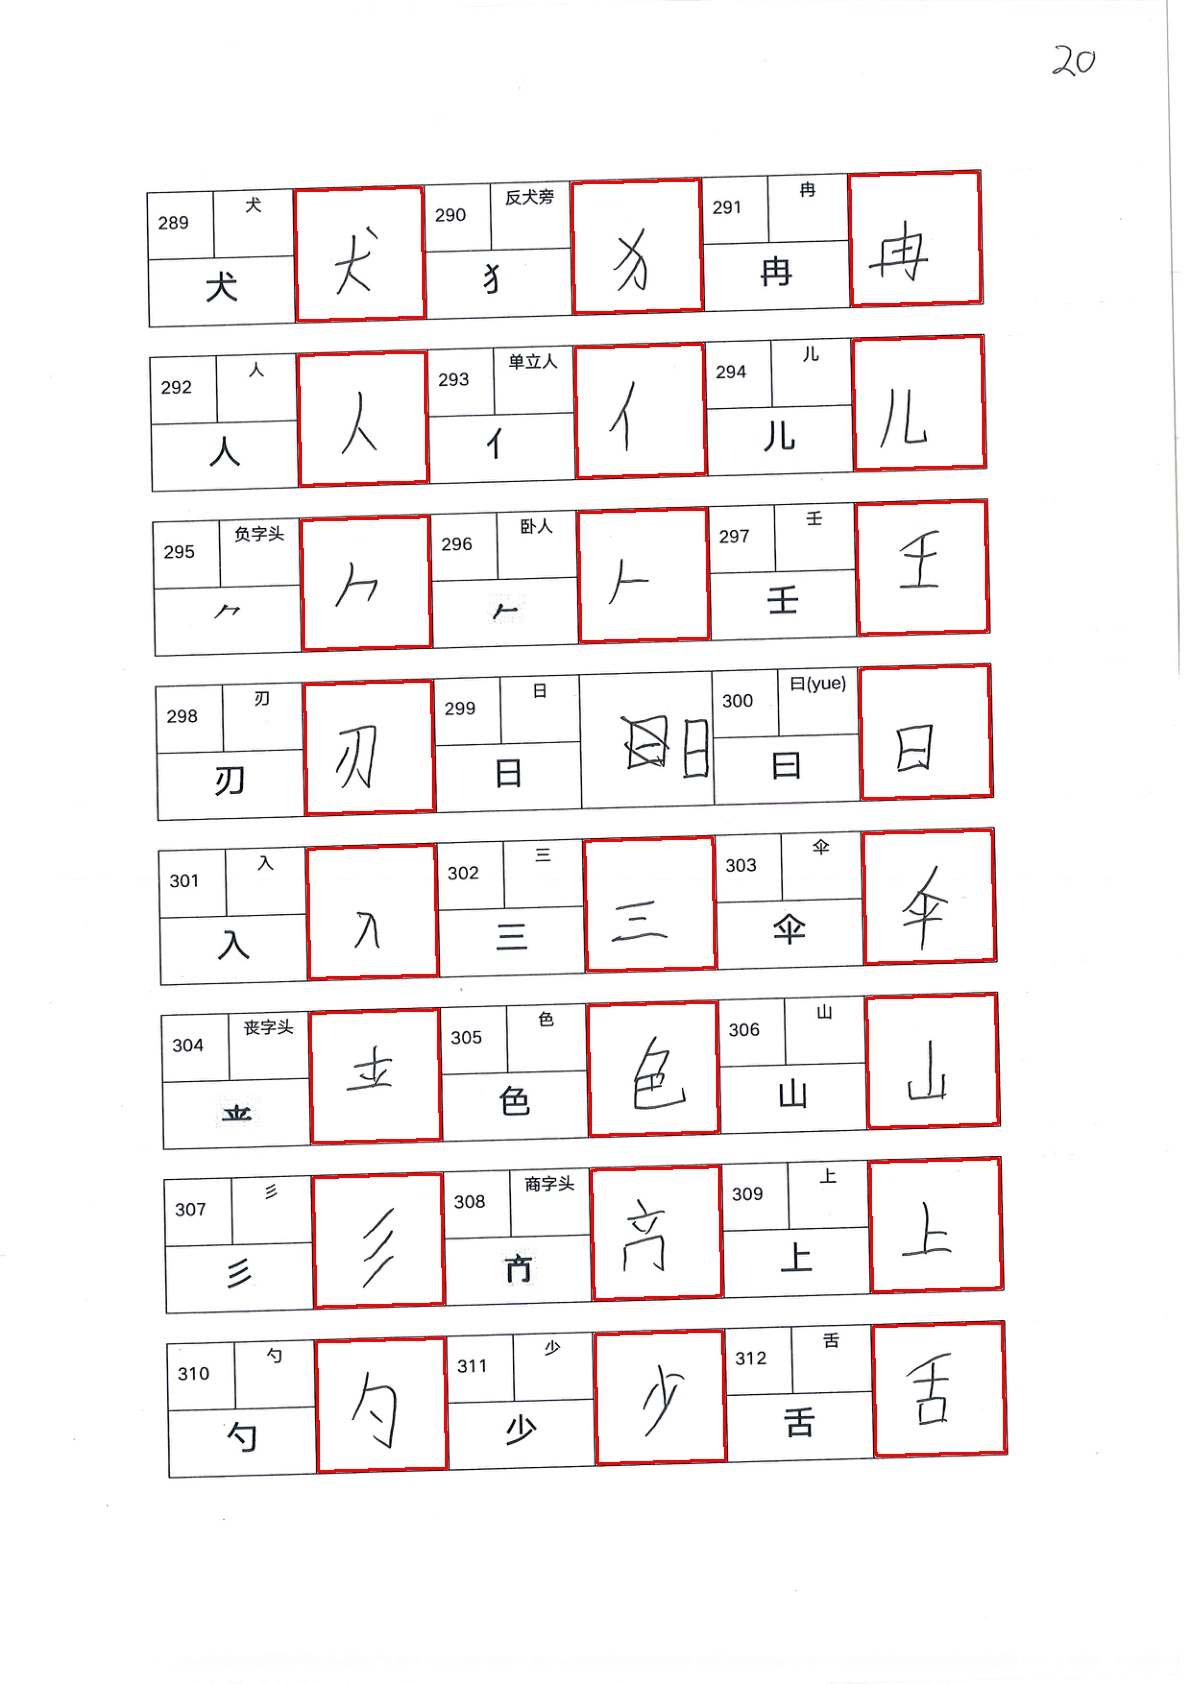 20
289 犬 犬 犬 290 反犬旁 犭 犭 291 冉 冉 冉
292 人 人 人 293 单立人 亻 亻 294 儿 儿 儿
295 负字头 ⺈ ⺈ 296 卧人 𠂉 𠂉 297 壬 壬 壬
298 刃 刃 刃 299 日 日 日 300 曰(yue) 曰 曰
301 入 入 入 302 三 三 三 303 伞 伞 伞
304 丧字头 305 色 色 色 306 山 山 山
307 彡 彡 彡 308 商字头 309 上 上 上
310 勺 勺 勺 311 少 少 少 312 舌 舌 舌